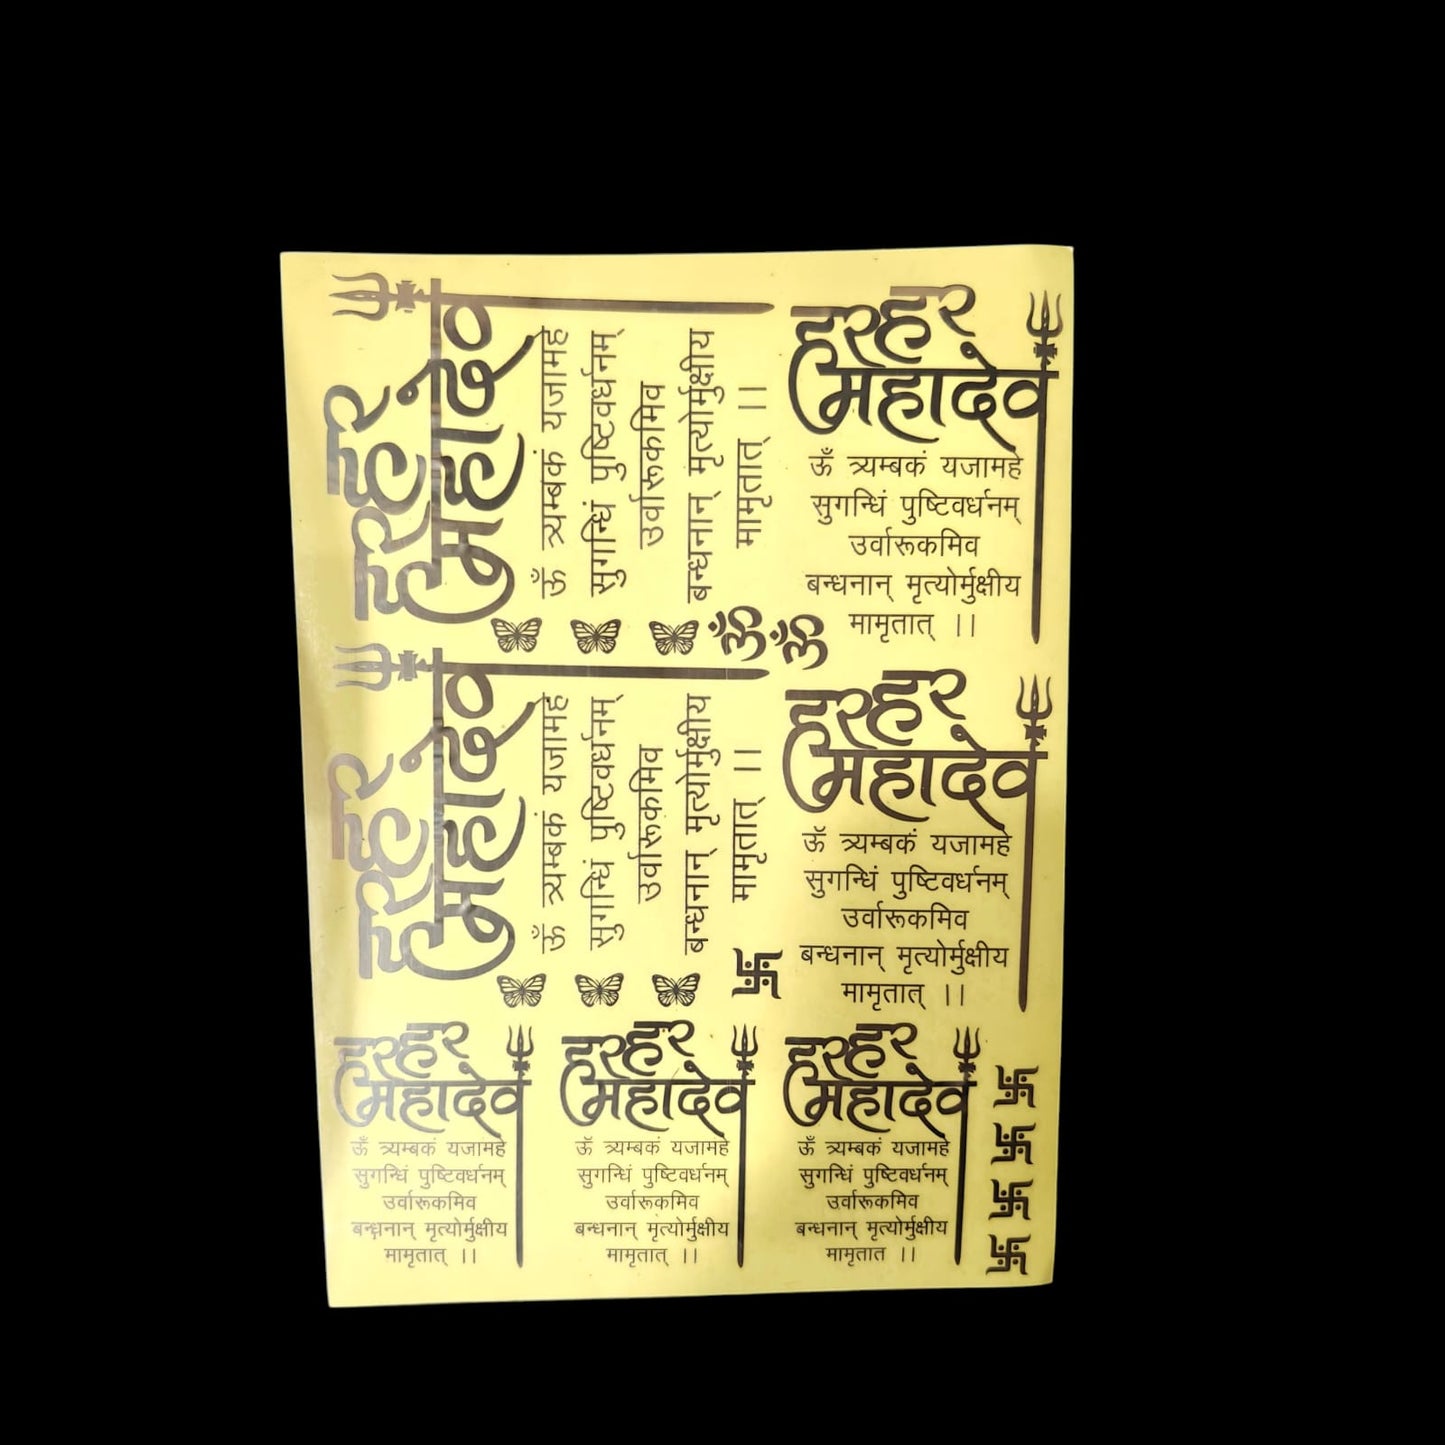 हर हर
महादेव
ॐ त्र्यम्बकं यजामहे
सुगन्धिं पुष्टिवर्धनम्
उर्वारूकमिव
बन्धनान् मृत्योर्मुक्षीय
मामृतात् ।।
हर हर
महादेव
ॐ त्र्यम्बकं यजामहे
सुगन्धिं पुष्टिवर्धनम्
उर्वारूकमिव
बन्धनान् मृत्योर्मुक्षीय
मामृतात् ।।
ॐ ॐ
हर हर
महादेव
ॐ त्र्यम्बकं यजामहे
सुगन्धिं पुष्टिवर्धनम्
उर्वारूकमिव
बन्धनान् मृत्योर्मुक्षीय
मामृतात् ।।
हर हर
महादेव
ॐ त्र्यम्बकं यजामहे
सुगन्धिं पुष्टिवर्धनम्
उर्वारूकमिव
बन्धनान् मृत्योर्मुक्षीय
मामृतात् ।।
हर हर
महादेव
ॐ त्र्यम्बकं यजामहे
सुगन्धिं पुष्टिवर्धनम्
उर्वारूकमिव
बन्धनान् मृत्योर्मुक्षीय
मामृतात् ।।
हर हर
महादेव
ॐ त्र्यम्बकं यजामहे
सुगन्धिं पुष्टिवर्धनम्
उर्वारूकमिव
बन्धनान् मृत्योर्मुक्षीय
मामृतात् ।।
हर हर
महादेव
ॐ त्र्यम्बकं यजामहे
सुगन्धिं पुष्टिवर्धनम्
उर्वारूकमिव
बन्धनान् मृत्योर्मुक्षीय
मामृतात ।।